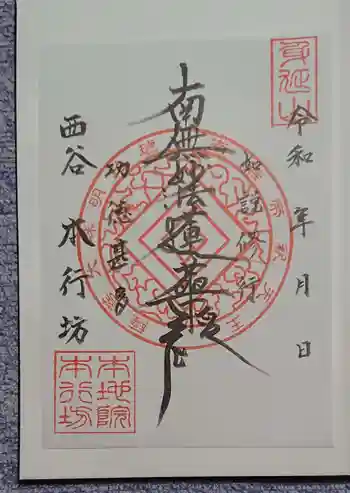 身延山
令和 年 月 日
如説修行
南無妙法蓮華経
功徳甚多
西谷 本行坊
本地院
本行坊